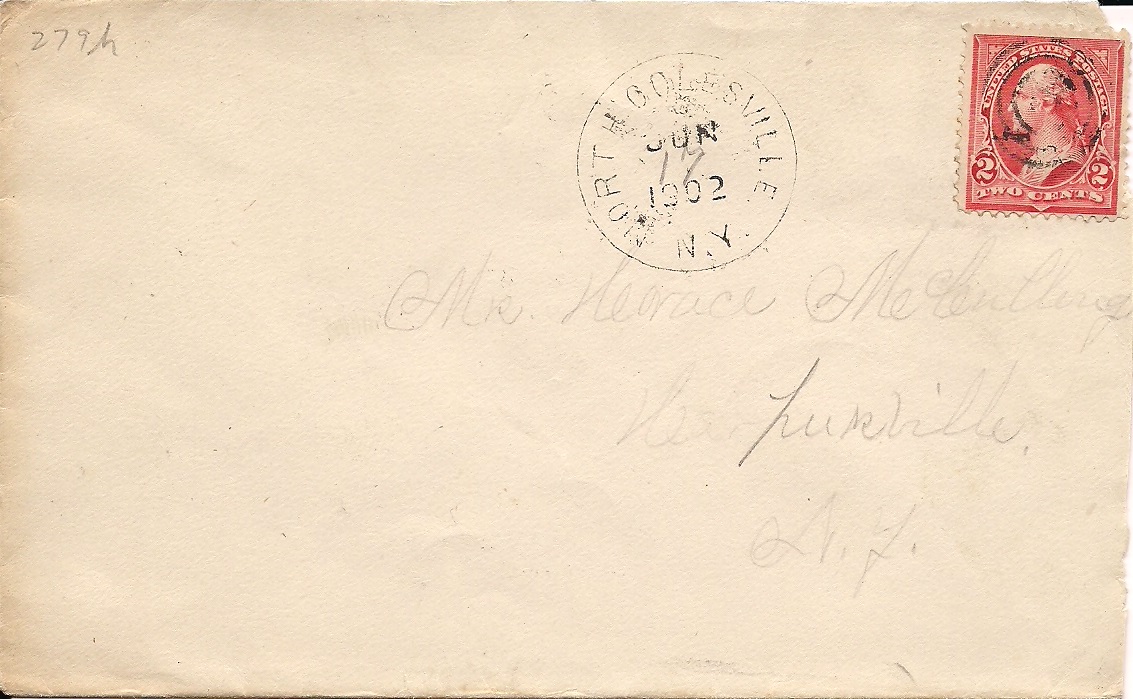 279h
NORTH COLESVILLE
JUN
17
1902
N.Y.
UNITED STATES POSTAGE
2 2
TWO CENTS
Mr. Horace
N.Y.